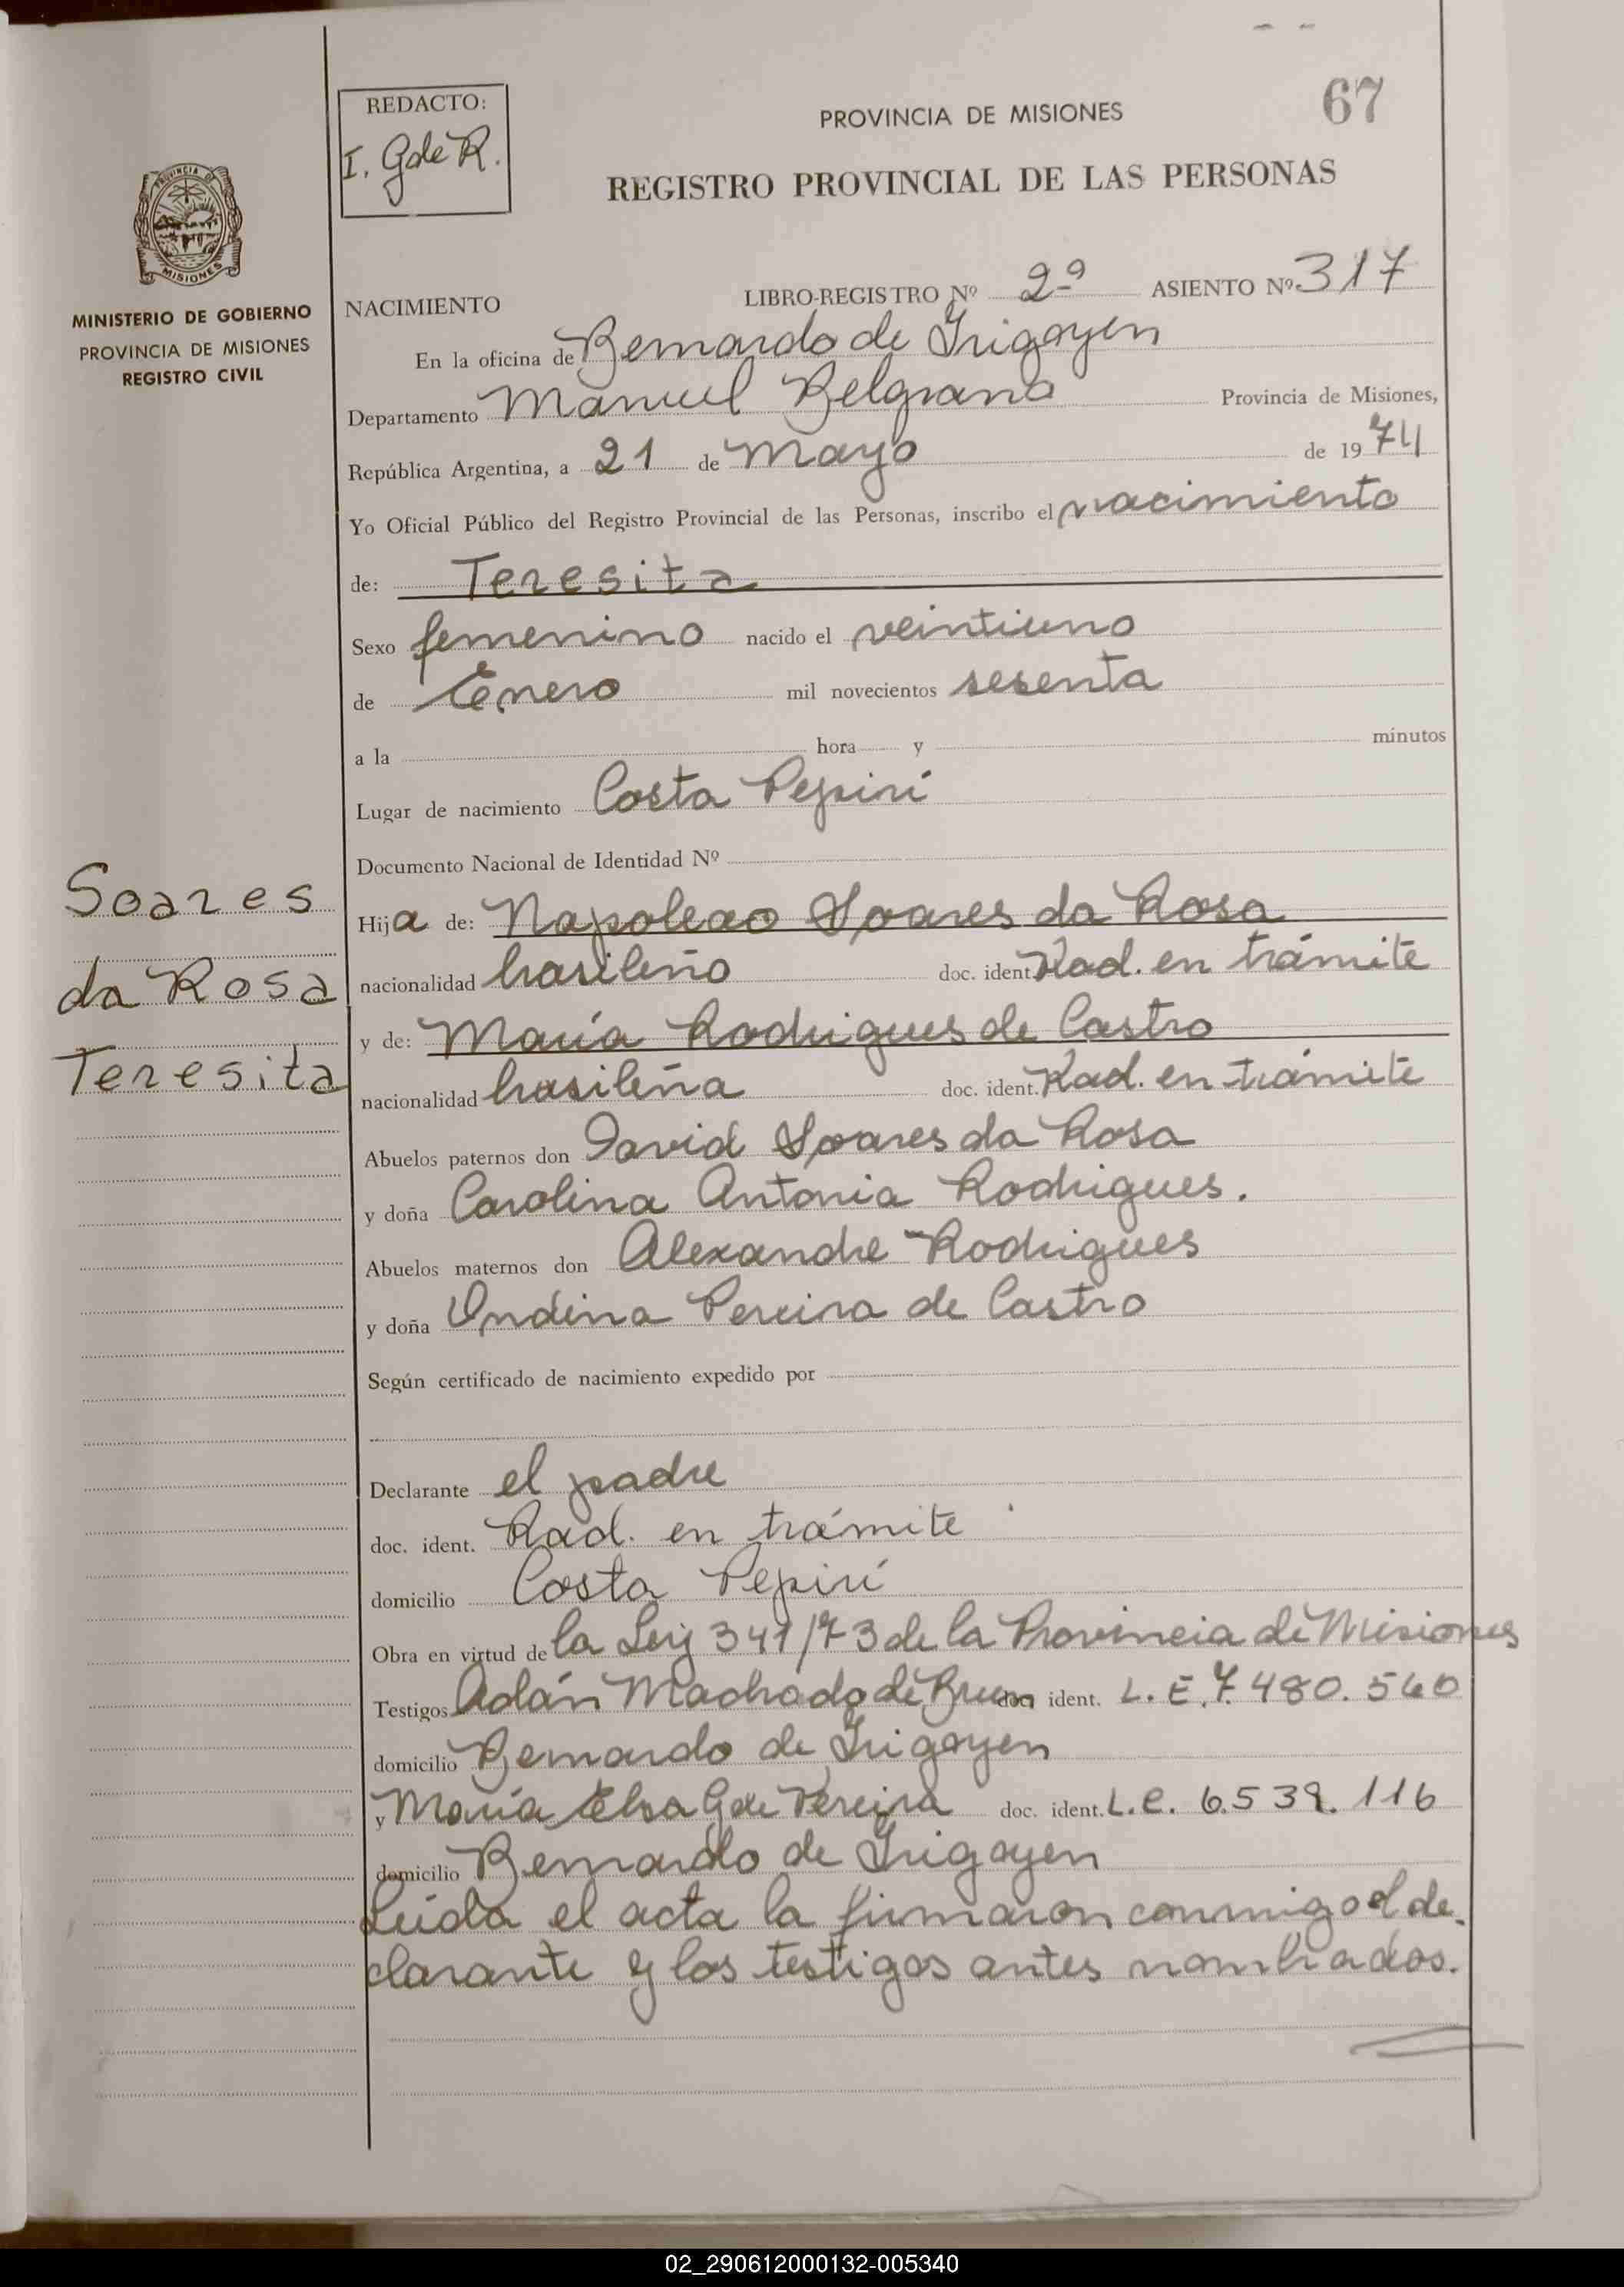 67
REDACTO:
I. G de R.
PROVINCIA DE MISIONES
REGISTRO PROVINCIAL DE LAS PERSONAS
PROVINCIA DE
MISIONES
MINISTERIO DE GOBIERNO
PROVINCIA DE MISIONES
REGISTRO CIVIL
NACIMIENTO LIBRO-REGISTRO Nº 2º ASIENTO Nº 317
En la oficina de Bernardo de Irigoyen
Departamento Manuel Belgrano Provincia de Misiones,
República Argentina, a 21 de Mayo de 1974
Yo Oficial Público del Registro Provincial de las Personas, inscribo el nacimiento
de: Teresita
Sexo femenino nacido el veintiuno
de Enero mil novecientos sesenta
a la hora y minutos
Lugar de nacimiento Costa Pepirí
Documento Nacional de Identidad Nº
Soares
da Rosa
Teresita
Hija de: Napoleao Soares da Rosa
nacionalidad brasileño doc. ident. Rad. en trámite
y de: María Rodrigues de Castro
nacionalidad brasileña doc. ident. Rad. en trámite
Abuelos paternos don David Soares da Rosa
y doña Carolina Antonia Rodrigues.
Abuelos maternos don Alexandre Rodrigues
y doña Ondina Pereira de Castro
Según certificado de nacimiento expedido por
Declarante el padre
doc. ident. Rad. en trámite
domicilio Costa Pepirí
Obra en virtud de la Ley 341/73 de la Provincia de Misiones
Testigos Adán Machado de doc. ident. L.E. 7.480.560
domicilio Bernardo de Irigoyen
y María Elsa G de Pereira doc. ident. L.C. 6.539.116
domicilio Bernardo de Irigoyen
Leída el acta la firmaron conmigo el de-
clarante y los testigos antes nombrados.
02_290612000132-005340